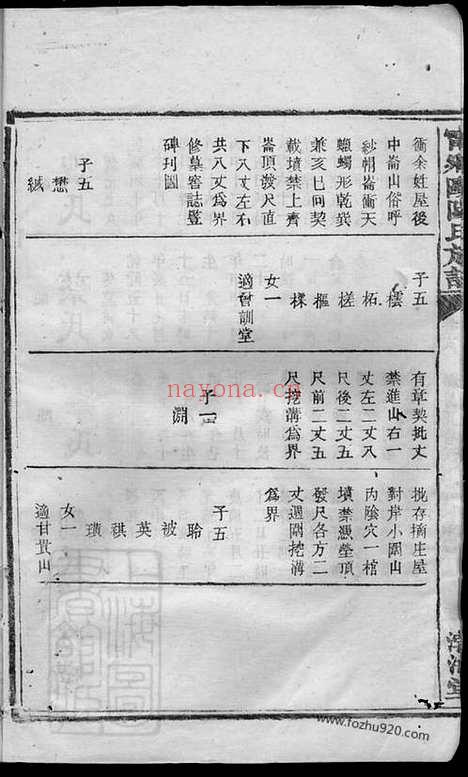 衝余姓屋後
中崙山俗呼
秒朝崙衝天
蠟蠋形乾巽
兼亥巳向契
載墳禁上齊
崙頂潑尺直
下八丈左右
共八丈爲界
修墓窖誌豎
碑刊圖
子五
懋
緎
子五
橒
柘
槎
樞
樣
女一
適曾訓堂
有章契批丈
禁進山右一
丈左二丈八
尺後二丈五
尺前二丈五
尺挖溝爲界
子一
淵
批存摘庄屋
對岸小園山
內陰穴一棺
墳禁憑塋頂
發尺各方二
丈週圍挖溝
爲界
子五
聆
被
英
祺
璜
女一
適甘貴山
nayona.cn
www.fozhu920.com